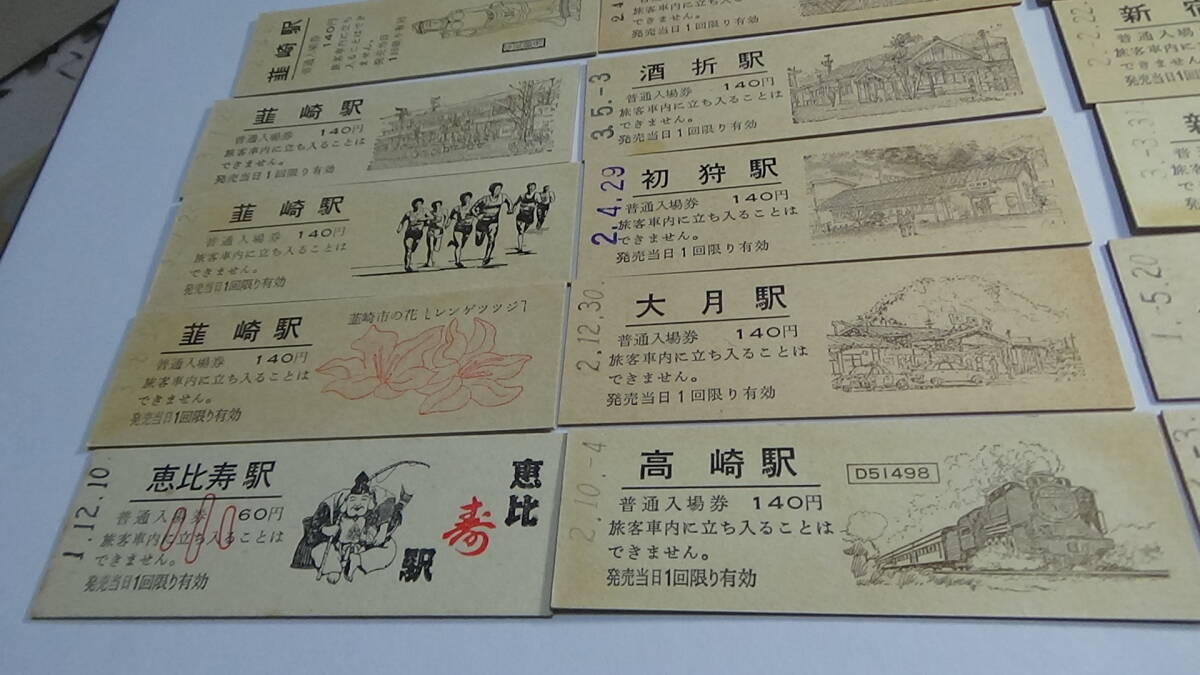 韮崎駅
普通入場券 140円
旅客車内に立ち
入ることはでき
ません。
発売当日
1回限り有効
韮崎駅
普通入場券 140円
旅客車内に立ち入ることは
できません。
発売当日1回限り有効
韮崎駅
普通入場券 140円
旅客車内に立ち入ることは
できません。
発売当日1回限り有効
韮崎駅
韮崎市の花「レンゲツツジ」
普通入場券 140円
旅客車内に立ち入ることは
できません。
発売当日1回限り有効
1.12.10
恵比寿駅
普通入場券 60円
旅客車内に立ち入ることは
できません。
発売当日1回限り有効
恵比
寿
駅
旅客車内に立ち入ることは
できません。
発売当日1回限り有効
3.5.-3
酒折駅
普通入場券 140円
旅客車内に立ち入ることは
できません。
発売当日1回限り有効
2.4.29
初狩駅
普通入場券 140円
旅客車内に立ち入ることは
できません。
発売当日1回限り有効
2.12.30
大月駅
普通入場券 140円
旅客車内に立ち入ることは
できません。
発売当日1回限り有効
2.10.-4
高崎駅
D51498
普通入場券 140円
旅客車内に立ち入ることは
できません。
発売当日1回限り有効
2.2.22
新宿
普通入場券
旅客車内に
できません
発売当日1
3.-3.31
新
普通
旅客
でき
発売
1.-5.20
-3.